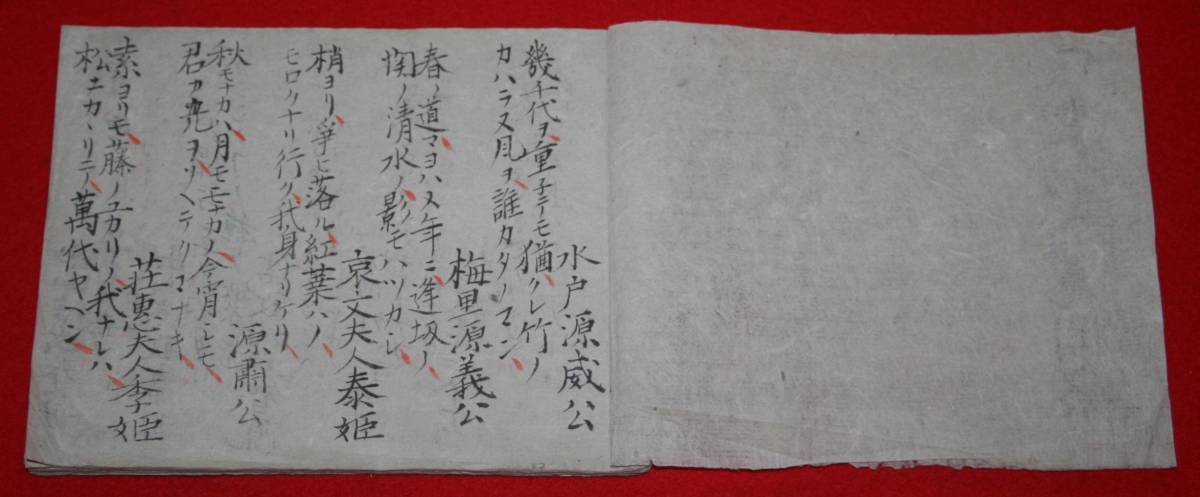 水戸源威公
幾千代ヲ重子テモ猶クレ竹ノ
カハラヌ見ヲ誰カタノマン
梅里源義公
春ノ道マヨハヌ年ニ逢坂ノ
関ノ清水ノ影モハツカシ
哀文夫人泰姫
梢ヨリ争ヒ落ル紅葉ハノ
モロクナリ行ク我身ナリケリ
源肅公
秋モナカハ月モモナカノ今宵シモ
君カ光ヲソヘテクマナキ
荘恵夫人季姫
索ヨリモ藤ノユカリノ我ナレハ
松ニカヽリテ萬代ヤヘン